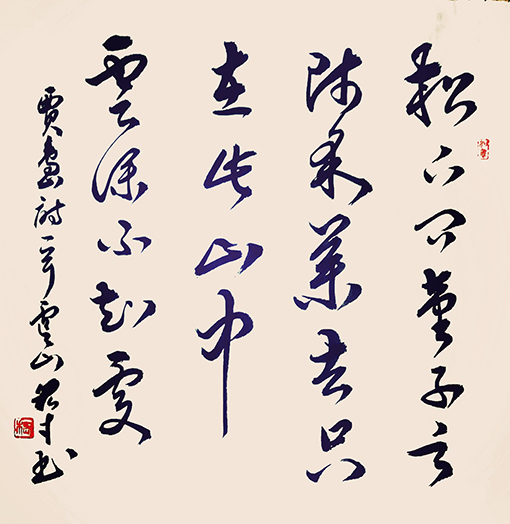 松下问童子言
师采药去只
在此山中
云深不知处
贾岛诗一首云山